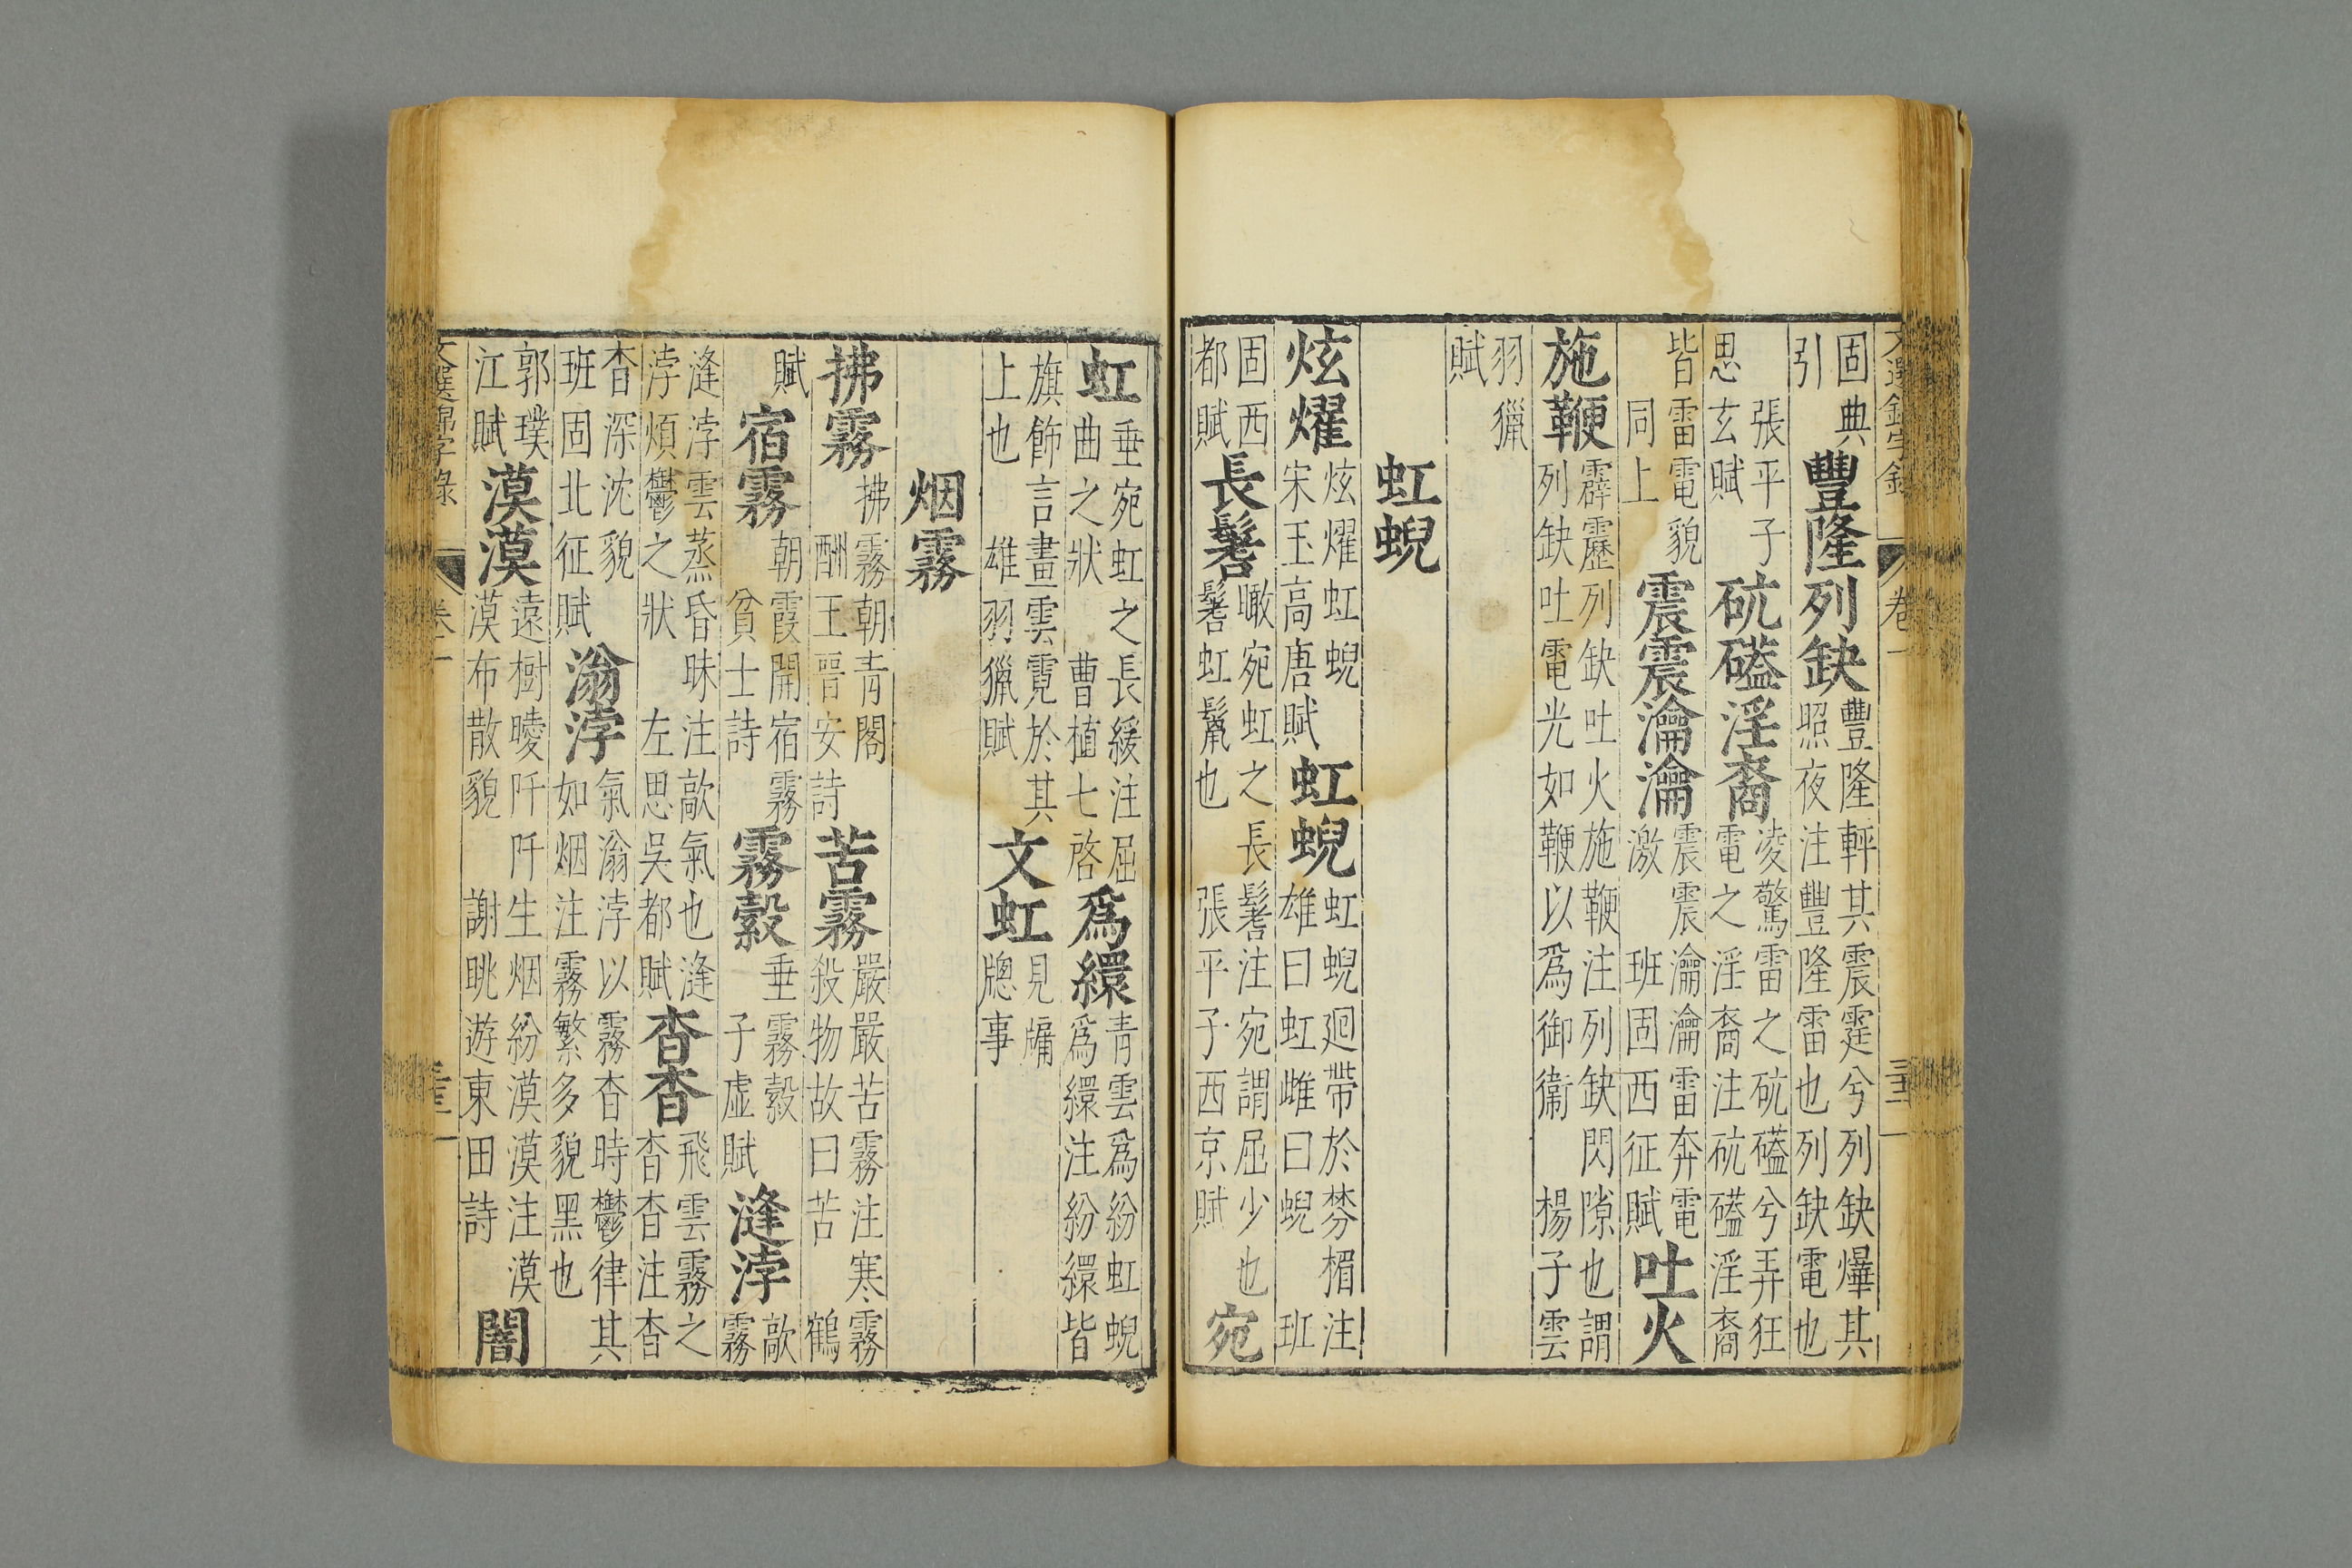 文選錦字錄 卷一
固典引 豐隆列缺 豐隆軯其震霆兮列缺爗其照夜注豐隆雷也列缺電也
張平子思玄賦 砊磕淫裔 凌驚雷之砊磕兮弄狂電之淫裔注砊磕淫裔
皆雷電貌同上 震震瀹瀹 震震瀹瀹雷奔電激 班固西征賦 吐火
施鞭 霹靂列缺吐火施鞭注列缺閃隙也謂列缺吐電光如鞭以爲御衛 楊子雲
羽獵賦
虹蜺
炫燿 炫燿虹蜺宋玉高唐賦 虹蜺 虹蜺廻帶於棼楣注雄曰虹雌曰蜺 班
固西都賦 長鬐 瞰宛虹之長鬐注宛謂屈少也鬐虹鬣也 張平子西京賦 宛
虹 垂宛虹之長綏注屈曲之狀 曹植七啓 爲繯 青雲爲紛虹蜺爲繯注紛繯皆
旗飾言畫雲霓於其上也 雄羽獵賦 文虹 見牗牕事
烟霧
拂霧 拂霧朝青閣 酬王晋安詩 苦霧 嚴嚴苦霧注寒霧殺物故曰苦 鶴
賦 宿霧 朝霞開宿霧 貧士詩 霧縠 垂霧縠 子虛賦 漨浡 歊霧
漨浡雲蒸昏昧注歊氣也漨浡煩鬱之狀 左思吳都賦 杳杳 飛雲霧之杳杳注杳
杳深沈貌 班固北征賦 滃浡 氣滃浡以霧杳時鬱律其如烟注霧繁多貌黑也
郭璞江賦 漠漠 遠樹曖阡阡生烟紛漠漠注漠漠布散貌 謝眺遊東田詩 闇
文選錦字錄 卷一